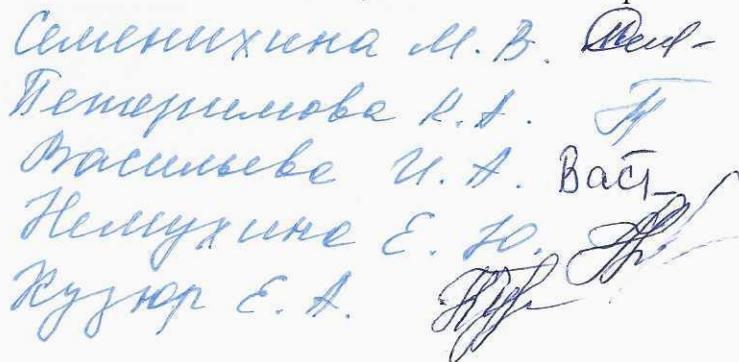 Семенихина М. В.
Петеримова К. А.
Васильева И. А. Васт
Немухина Е. Ю.
Кузюр Е. А.